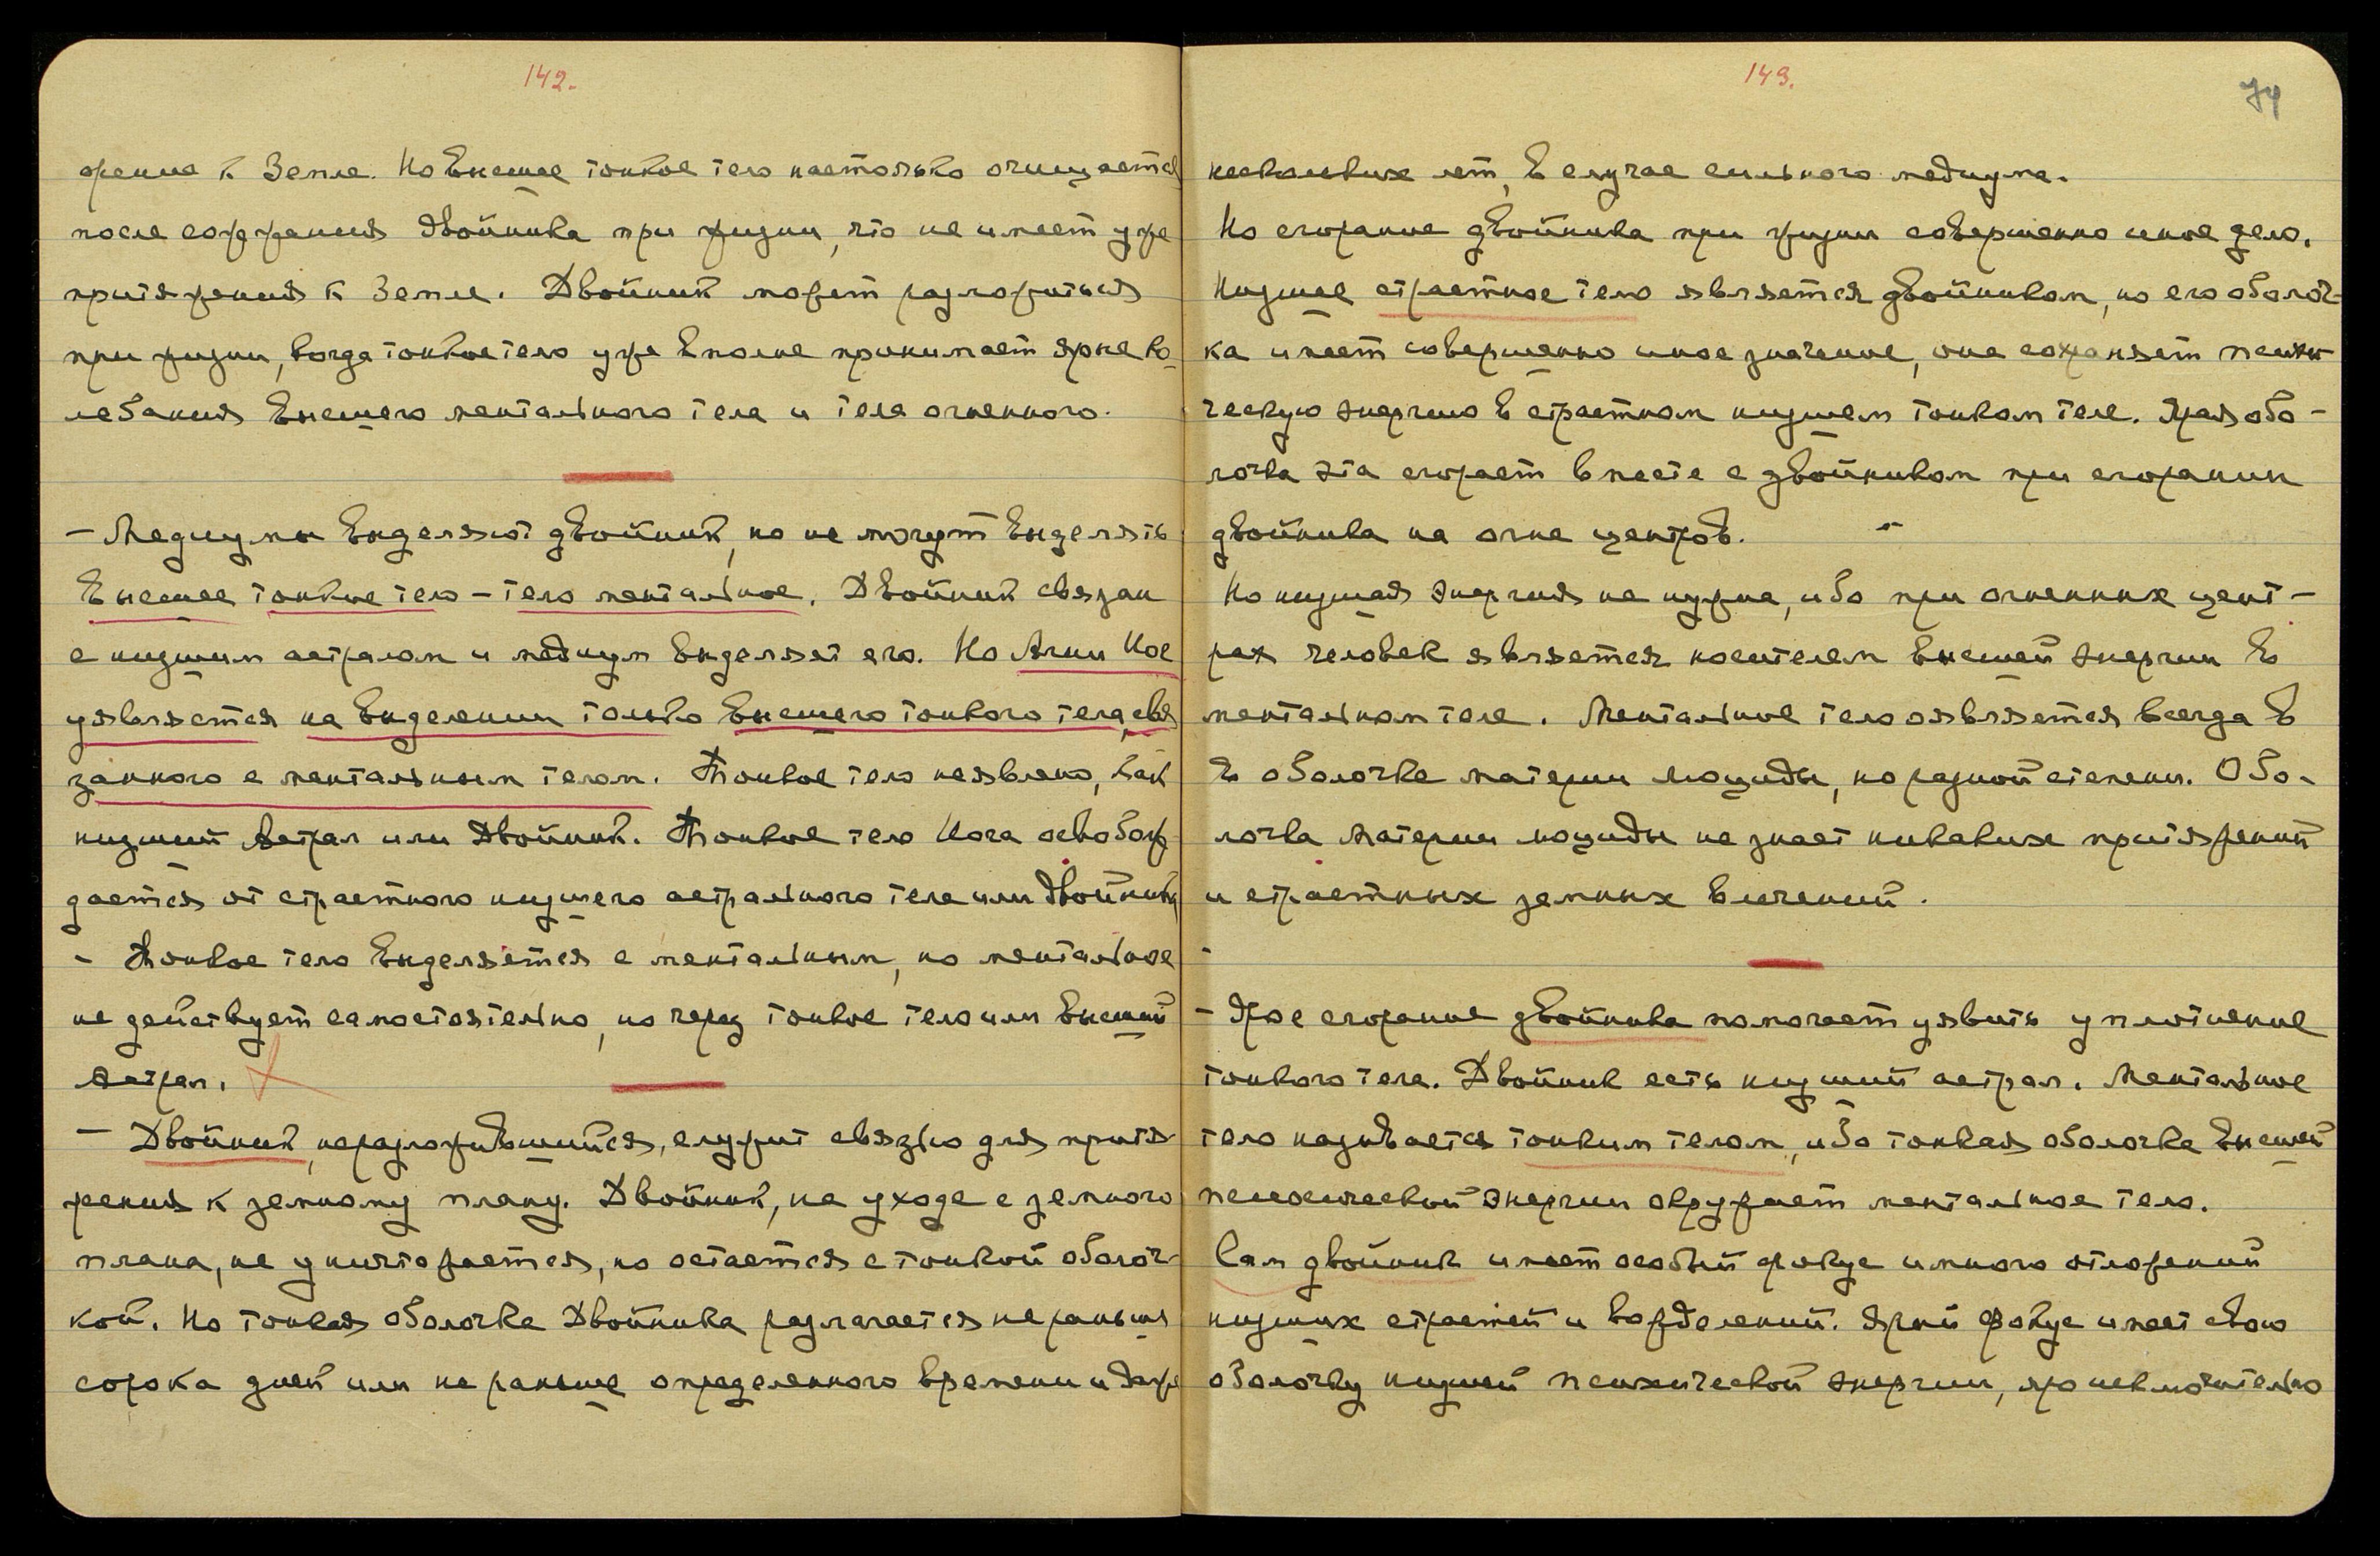 142.
жение к Земле. Но Высшее тонкое тело настолько очищается
после сожжения двойника при жизни, что не имеет уже
притяжения к Земле. Двойник может разложиться
при жизни, когда тонкое тело уже вполне принимает ярые ко-
лебания Высшего ментального тела и тела огненного.
– Медиумы выделяют двойник, но не могут выделять
Высшее тонкое тело – тело ментальное. Двойник связан
с низшим астралом и медиум выделяет его. Но Агни Йог
уявляется на выделении только Высшего тонкого тела, свя-
занного с ментальным телом. Тонкое тело не явлено, как
низший Астрал или Двойник. Тонкое тело Йога освобож-
дается от страстного низшего астрального тела или Двойника
– Тонкое тело выделяется с ментальным, но ментальное
не действует самостоятельно, но через тонкое тело или Высший
Астрал.
– Двойник, неразложившийся, служит связью для притя-
жения к земному плану. Двойник, на уходе с земного
плана, не уничтожается, но остается с тонкой оболоч-
кой. Но тонкая оболочка Двойника разлагается не раньше
сорока дней или не раньше определенного времени и даже
143.
74
нескольких лет, в случае сильного медиума.
Но сгорание двойника при жизни совершенно иное дело.
Низшее страстное тело является двойником, но его оболоч-
ка имеет совершенно иное значение, она сохраняет психи-
ческую энергию в страстном низшем тонком теле. Ярая обо-
лочка эта сгорает вместе с двойником при сгорании
двойника на огне центров.
Но низшая энергия не нужна, ибо при огненных цент-
рах человек является носителем Высшей энергии в
ментальном теле. Ментальное тело оявляется всегда в
в оболочке материи люциды, но разной степени. Обо-
лочка материи люциды не знает никаких притяжений
и страстных земных влечений.
– Ярое сгорание двойника помогает уявить уплотнение
тонкого тела. Двойник есть низший астрал. Ментальное
тело называется тонким телом, ибо тонкая оболочка Высшей
психической энергии окружает ментальное тело.
Сам двойник имеет особый фокус и много отложений
низших страстей и вожделений. Ярый фокус имеет свою
оболочку низшей психической энергии, яро исключительно